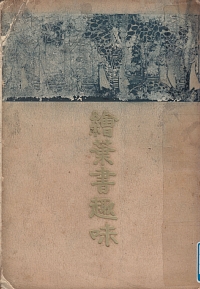 繪葉書趣味